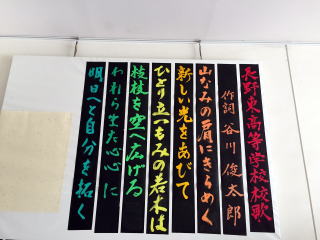 長野東高等学校校歌
作詞 谷川 俊太郎
山なみの肩にきらめく
新しい光をあびて
ひとり立つもみの若木は
枝枝を空へ広げる
われら生きた心心に
明日へと自分を拓く